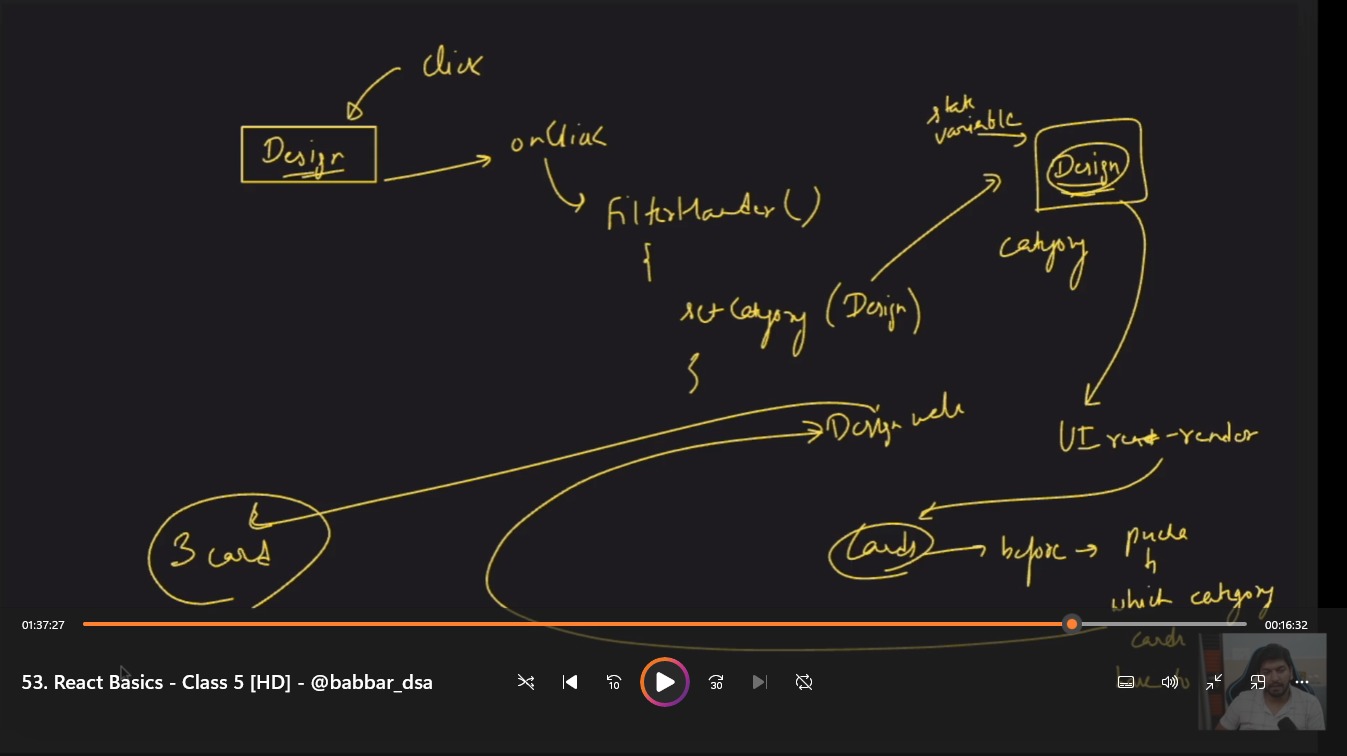 click
Design
onClick
FilterHandler()
{
setCategory (Design)
}
state
variable
Design
category
UI re-render
Cards
before
pucha
h
which category
cards
Design wale
3 card
01:37:27
00:16:32
53. React Basics - Class 5 [HD] - @babbar_dsa
10
30